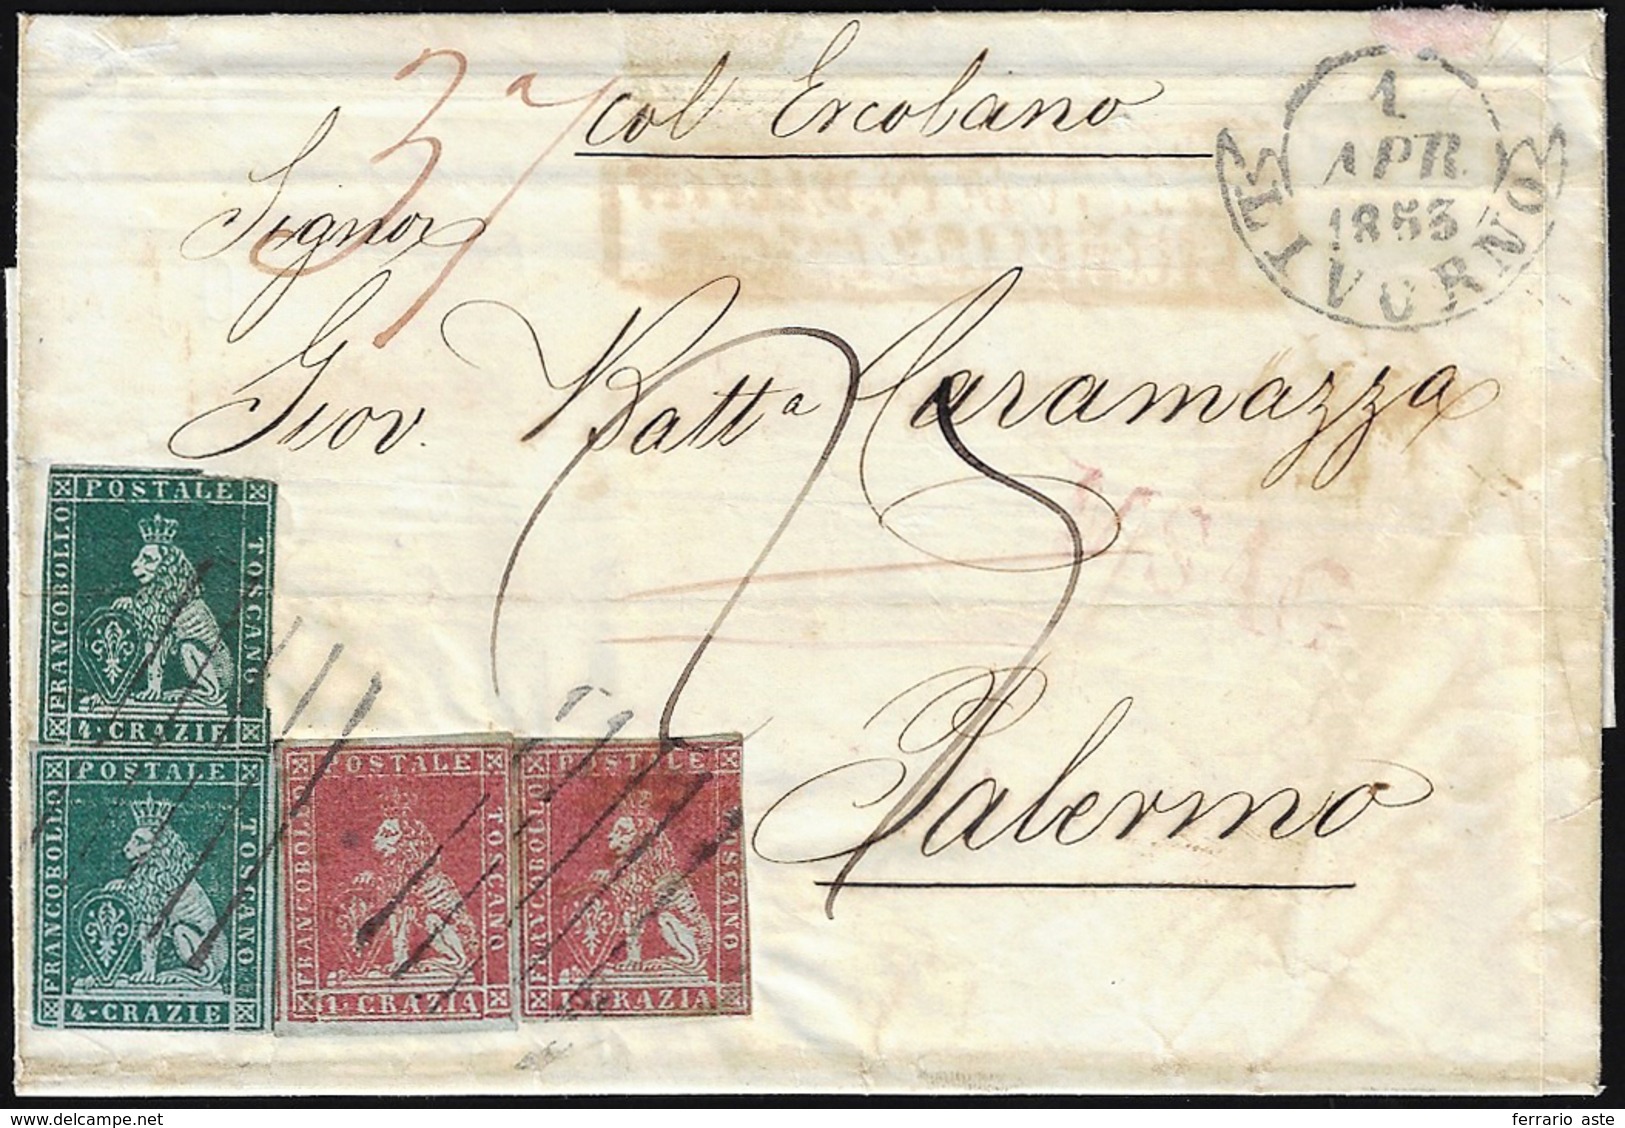 col Ercolano
37
1
APR
1853
LIVORNO
Signor
Giov. Batta Caramazza
25
Palermo
POSTALE
FRANCOBOLLO
TOSCANO
4·CRAZIE
POSTALE
FRANCOBOLLO
TOSCANO
4·CRAZIE
POSTALE
FRANCOBOLLO
TOSCANO
1·CRAZIA
POSTALE
FRANCOBOLLO
TOSCANO
1·CRAZIA
https://www.delcampe.net
ferrario aste